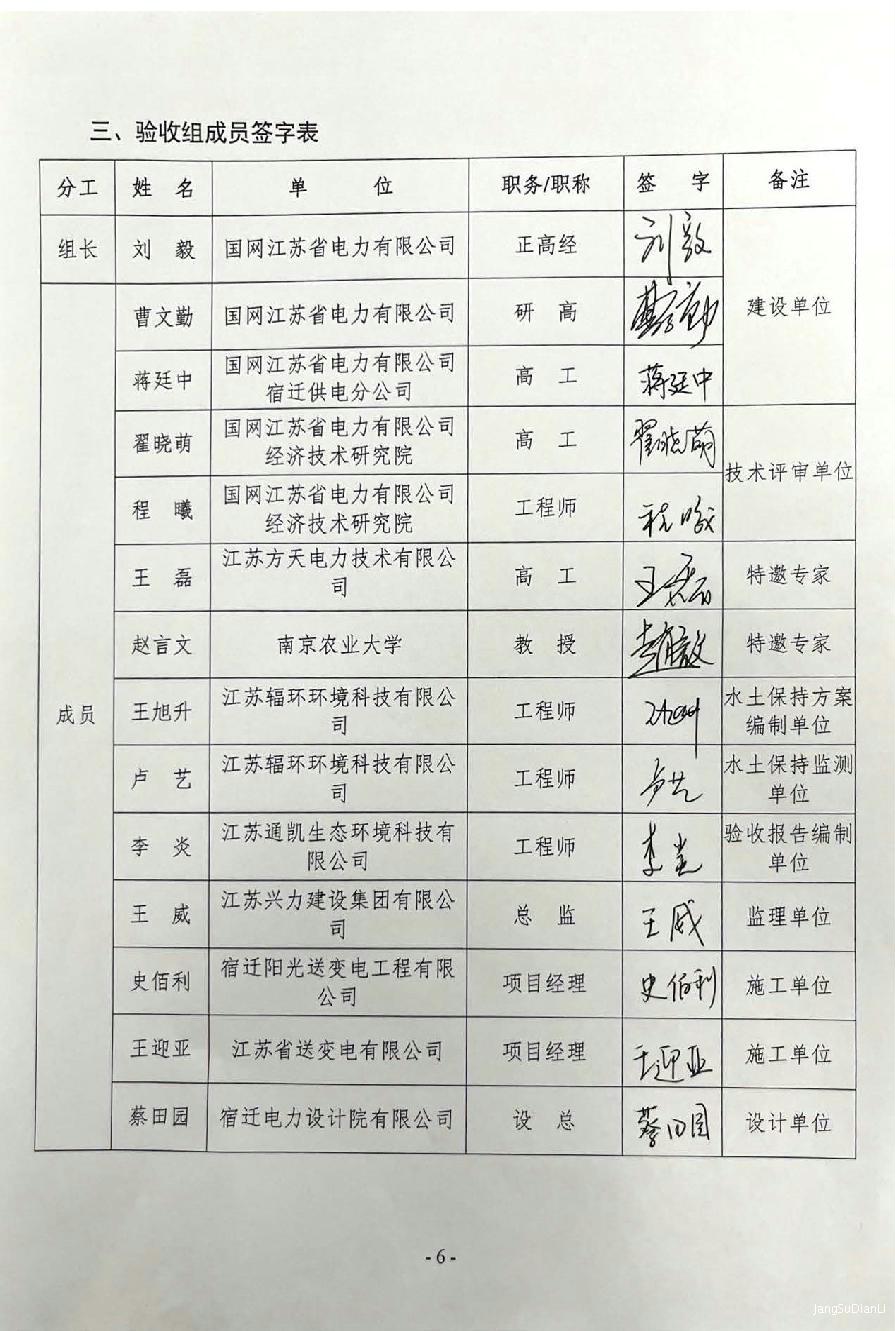 三、验收组成员签字表
分工 姓 名 单 位 职务/职称 签 字 备注
组长 刘 毅 国网江苏省电力有限公司 正高经 刘毅 建设单位
成员
曹文勤 国网江苏省电力有限公司 研 高 曹文勤
蒋廷中 国网江苏省电力有限公司 高 工 蒋廷中
宿迁供电分公司
翟晓萌 国网江苏省电力有限公司 高 工 翟晓萌 技术评审单位
经济技术研究院
程 曦 国网江苏省电力有限公司 工程师 程曦
经济技术研究院
王 磊 江苏方天电力技术有限公 高 工 王磊 特邀专家
司
赵言文 南京农业大学 教 授 特邀专家
王旭升 江苏辐环环境科技有限公 工程师 水土保持方案
司 编制单位
卢 艺 江苏辐环环境科技有限公 工程师 卢艺 水土保持监测
司 单位
李 炎 江苏通凯生态环境科技有 工程师 李炎 验收报告编制
限公司 单位
王 威 江苏兴力建设集团有限公 总 监 王威 监理单位
司
史佰利 宿迁阳光送变电工程有限 项目经理 史佰利 施工单位
公司
王迎亚 江苏省送变电有限公司 项目经理 王迎亚 施工单位
蔡田园 宿迁电力设计院有限公司 设 总 蔡田园 设计单位
- 6 -
JangSuDianLi